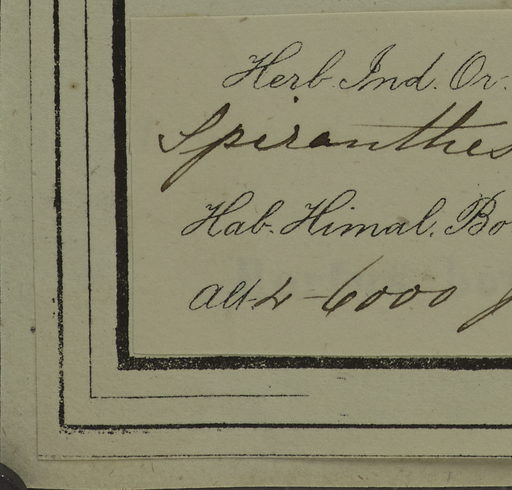 Herb. Ind. Or.
Spiranthes
Hab. Himal. Bo
Alt. 4-6000